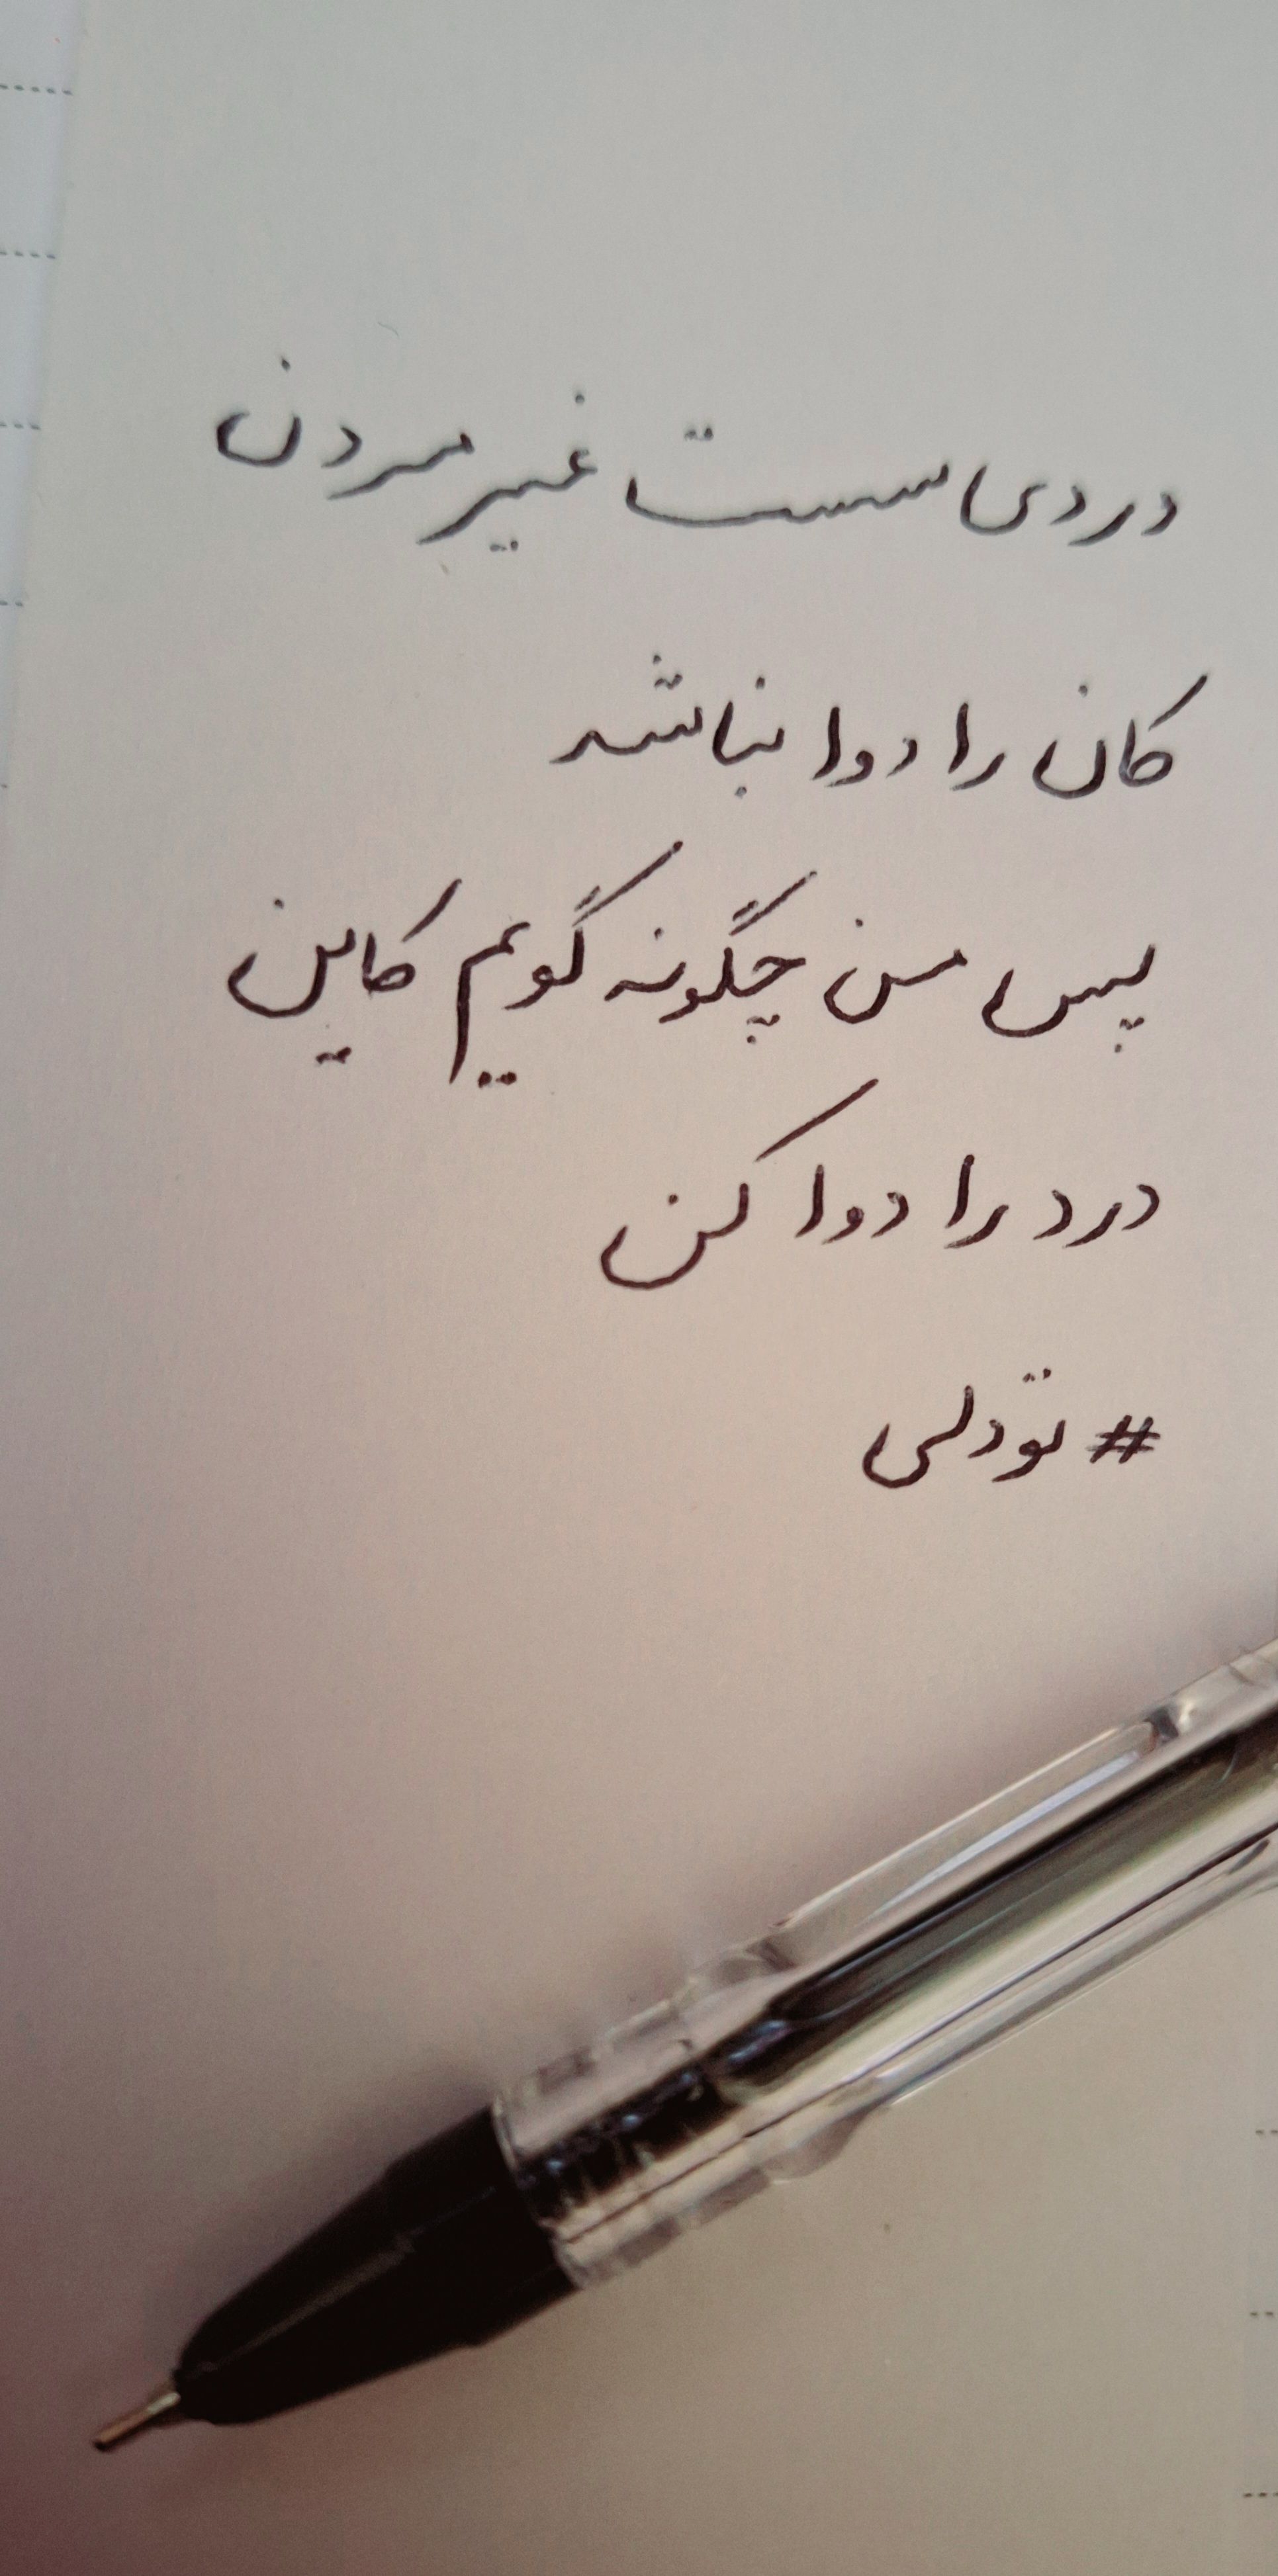 دردی ست غیر مردن
کان را دوا نباشد
پس من چگونه گویم کاین
درد را دوا کن
# تودلی